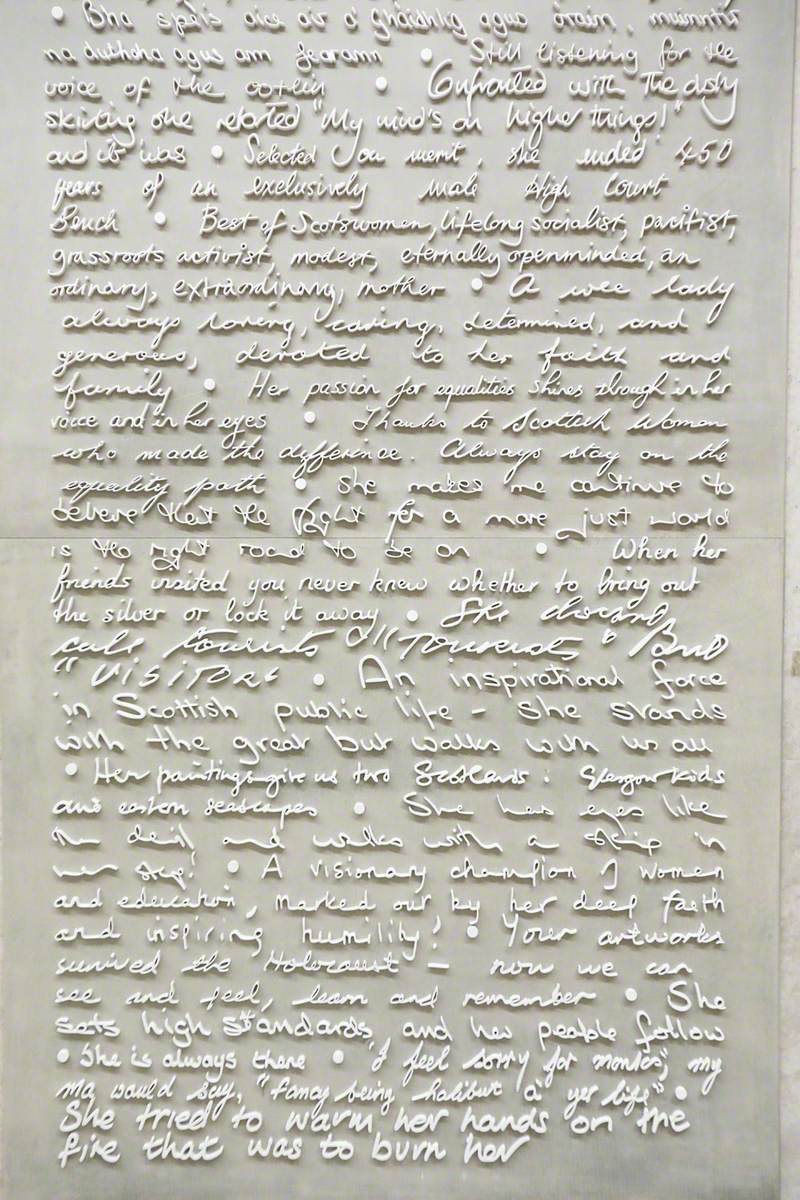 • Bha spèis aice air a' Ghàidhlig agus òrain, muinntir
na dùthcha agus am fearann • Still listening for the
voice of the
• Confronted with the dusty
skirting she retorted "My mind's on higher things!"
and it was • Selected on merit, she ended 450
years of an exclusively male High Court
Bench • Best of Scotswomen, lifelong socialist, pacifist,
grassroots activist, modest, eternally openminded, an
ordinary, extraordinary, mother • A wee lady
always loving, caring, determined, and
generous, devoted to her faith and
family • Her passion for equalities shines through in her
voice and in her eyes • Thanks to Scottish Women
who made the difference. Always stay on the
equality path • She makes me continue to
believe that the fight for a more just world
is the right road to be on • When her
friends visited you never knew whether to bring out
the silver or lock it away • She doesn't
call tourists "Tourists" but
"VISITORS • An inspirational force
in Scottish public life – she stands
with the great but walks with us all
• Her paintings give us two Scotlands: Glasgow kids
and eastern seascapes • She has eyes like
the devil and walks with a skip in
her step! • A visionary champion of women
and education, marked out by her deep faith
and inspiring humility! • Your artworks
survived the Holocaust – now we can
see and feel, learn and remember • She
sets high standards, and her people follow
• She is always there • "I feel sorry for monks", my
ma would say, "fancy being halibut a' yer life" •
She tried to warm her hands on the
fire that was to burn her